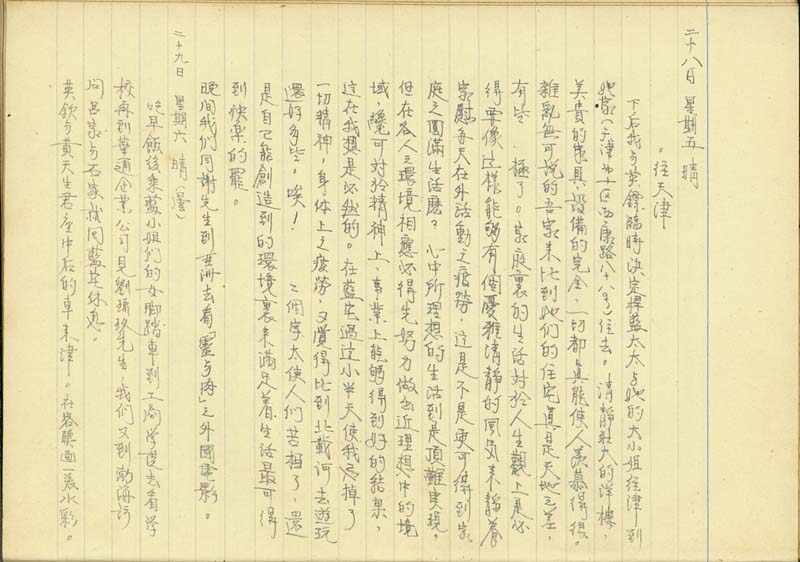 二十八日 星期五 晴
。往天津
下后我与英鐸臨時決定裡藍太太与她的大小姐往津到
她家(天津第十區西康路八十八号)往去。清靜壯大的洋樓,
美貴的家具,設備的完全,一切都真能使人羨慕得很。
雜亂無可説的吾家来比到她們的住宅真是天地之差,
有些 極了。家庭裏的生活对於人生觀上是必
得要像这樣能够有個優雅清靜的風気来靜養
安慰每天在外活動之疲勞,这是不是更可得到家
庭之圓滿生活麽?心中所理想的生活到是頂難実現,
但在各人之環境相應必得先努力做出近理想中的境
域,纔可对於精神上、事業上能够得到好的結果,
这在我想是必然的。在藍宅過这小半天使我忘掉了
一切精神,身体上之疲勞,又覺得比到北戴河去遊玩
還好多些。唉! 二個字太使人們苦相了,還
是自己能創造到的環境裏来滿足着生活最可得
到快楽的罷。
晚间我們同謝先生到亜洲去看「靈与肉」之外國電影。
二十九日 星期六 晴(曇)
吃早飯後乗藍小姐們的女脚踏車到工商学院去看学
校再到華通企業公司見劉 先生,我們又到渤海訪
问呂家与石家就回藍芝休息。
英欽与黄天生君坐中后的車来津。在客廳画一張水彩。